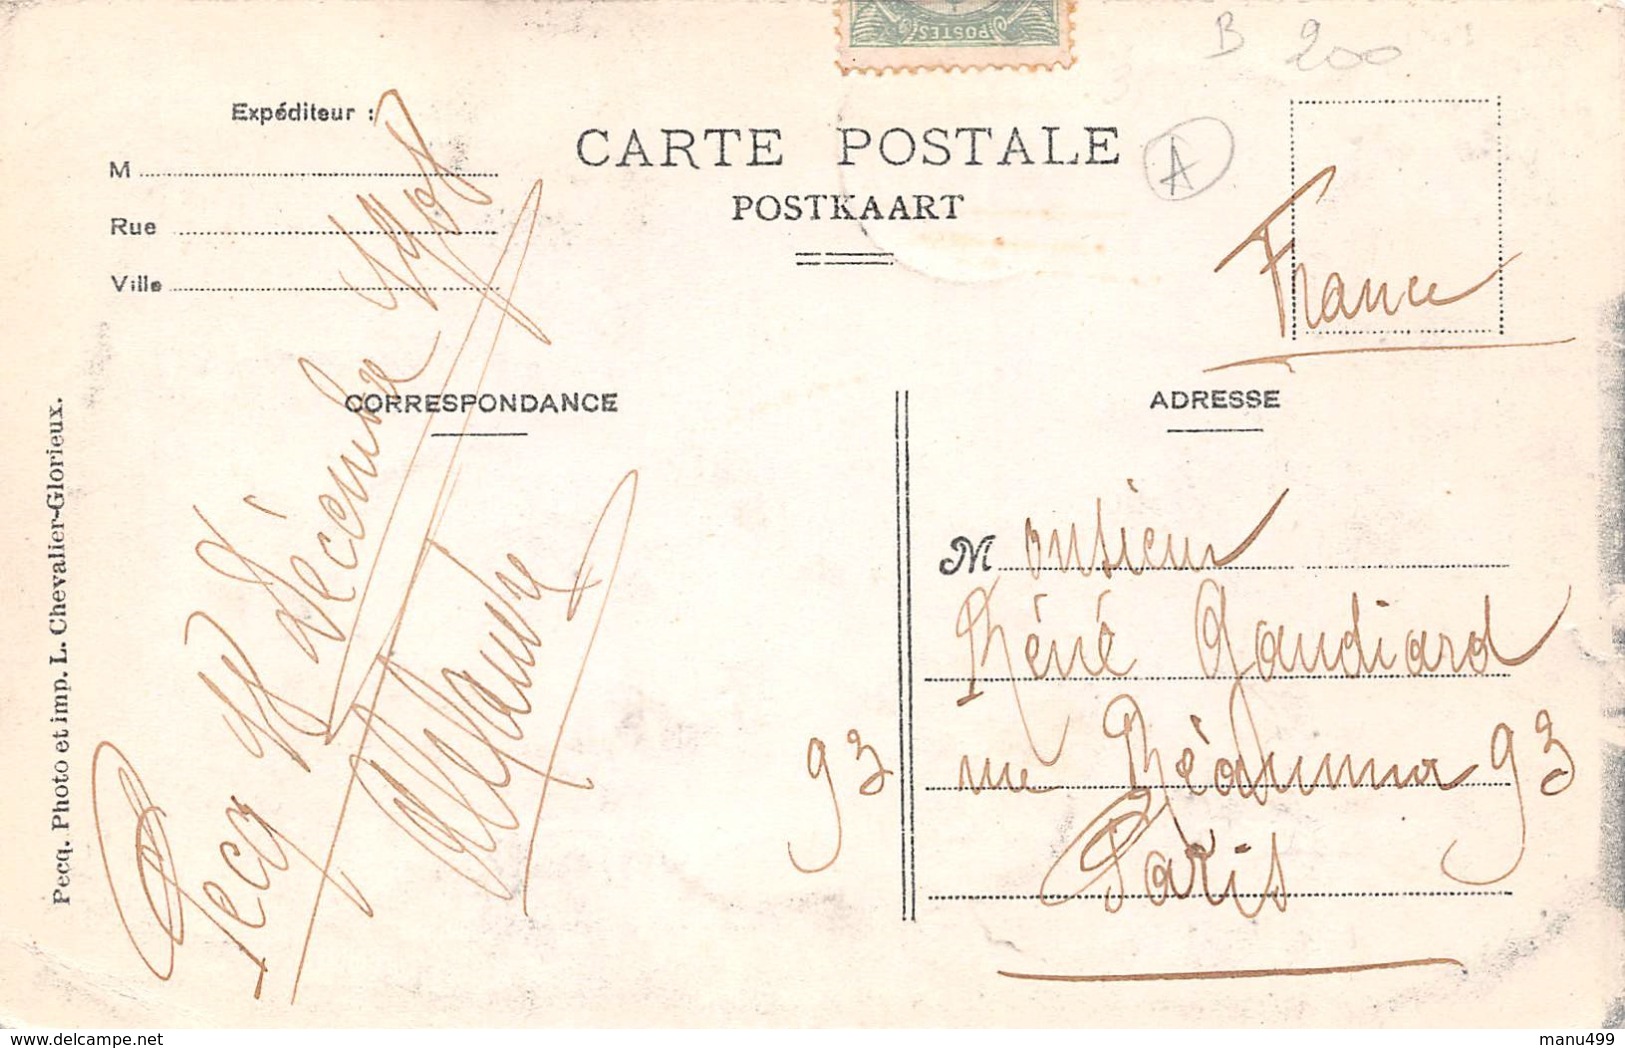 POSTES
B 200
A
Expéditeur :
M
Rue
Ville
CARTE POSTALE
POSTKAART
France
CORRESPONDANCE
ADRESSE
Pecq décembre 1908
93
Monsieur
Réné Gaudiard
rue Réaumur 93
Paris
Pecq. Photo et imp. L. Chevalier-Glorieux.
www.delcampe.net
manu499